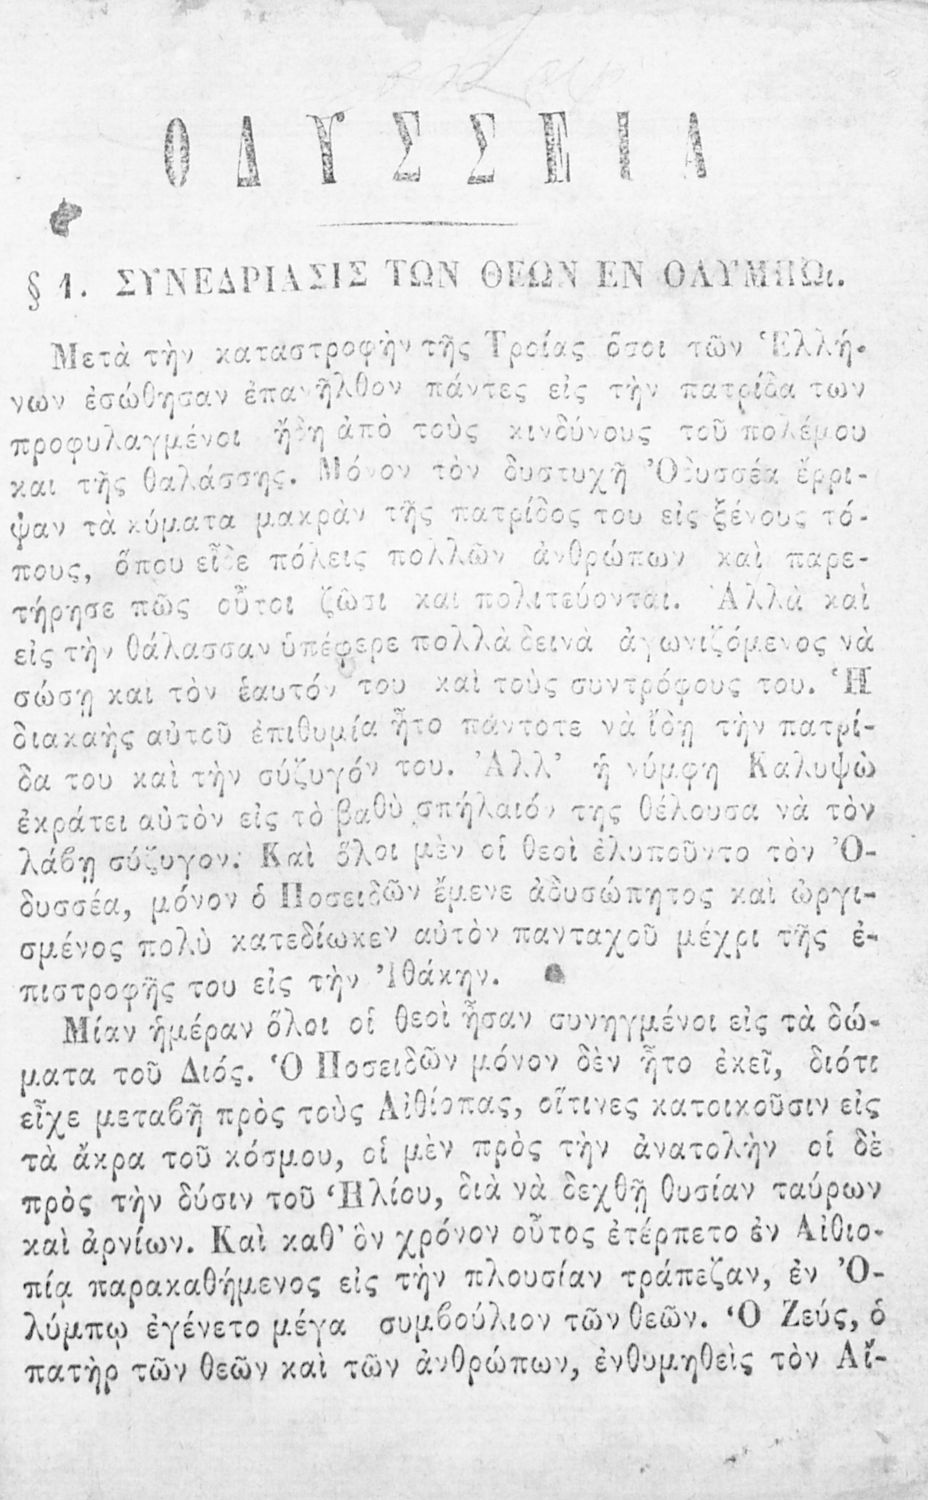 ΟΔΥΣΣΕΙΑ
§ 1. ΣΥΝΕΔΡΙΑΣΙΣ ΤΩΝ ΘΕΩΝ ΕΝ ΟΛΥΜΠΩι.
Μετὰ τὴν καταστροφὴν τῆς Τροίας ὅσοι τῶν Ἑλλή-
νων ἐσώθησαν ἐπανῆλθον πάντες εἰς τὴν πατρίδα των
προφυλαγμένοι ἤδη ἀπὸ τοὺς κινδύνους τοῦ πολέμου
και τῆς θαλάσσης. Μόνον τὸν δυστυχῆ Ὀδυσσέα ἔρρι-
ψαν τὰ κύματα μακρὰν τῆς πατρίδος του εἰς ξένους τό-
πους, ὅπου εἶδε πόλεις πολλῶν ἀνθρώπων καὶ παρε-
τήρησε πῶς οὗτοι ζῶσι και πολιτεύονται. Ἀλλὰ καὶ
εἰς τὴν θάλασσαν ὑπέφερε πολλὰ δεινὰ ἀγωνιζόμενος νὰ
σώσῃ και τὸν ἑαυτόν του καὶ τοὺς συντρόφους του. Ἡ
διακαὴς αὐτοῦ ἐπιθυμία ἦτο πάντοτε νὰ ἴδῃ τὴν πατρί-
δα του καὶ τὴν σύζυγόν του. Ἀλλ' ἡ νύμφη Καλυψὼ
ἐκράτει αὐτὸν εἰς τὸ βαθὺ σπήλαιόν της θέλουσα νὰ τὸν
λάβῃ σύζυγον. Καὶ ὅλοι μὲν οἱ θεοὶ ἐλυποῦντο τὸν Ὀ-
δυσσέα, μόνον ὁ Ποσειδῶν ἔμενε ἀδυσώπητος καὶ ὠργι-
σμένος πολὺ κατεδίωκεν αὐτὸν πανταχοῦ μέχρι τῆς ἐ-
πιστροφῆς του εἰς τὴν Ἰθάκην.
Μίαν ἡμέραν ὅλοι οἱ θεοὶ ἦσαν συνηγμένοι εἰς τὰ δώ-
ματα τοῦ Διός. Ὁ Ποσειδῶν μόνον δὲν ἦτο ἐκεῖ, διότι
εἶχε μεταβῆ πρὸς τοὺς Αἰθίοπας, οἵτινες κατοικοῦσιν εἰς
τὰ ἄκρα τοῦ κόσμου, οἱ μὲν πρὸς τὴν ἀνατολὴν οἱ δὲ
πρὸς τὴν δύσιν τοῦ Ἡλίου, διὰ νὰ δεχθῇ θυσίαν ταύρων
καὶ ἀρνίων. Καὶ καθ' ὃν χρόνον οὗτος ἐτέρπετο ἐν Αἰθιο-
πίᾳ παρακαθήμενος εἰς τὴν πλουσίαν τράπεζαν, ἐν Ὀ-
λύμπῳ ἐγένετο μέγα συμβούλιον τῶν θεῶν. Ὁ Ζεύς, ὁ
πατὴρ τῶν θεῶν καὶ τῶν ἀνθρώπων, ἐνθυμηθεὶς τὸν Αἴ-